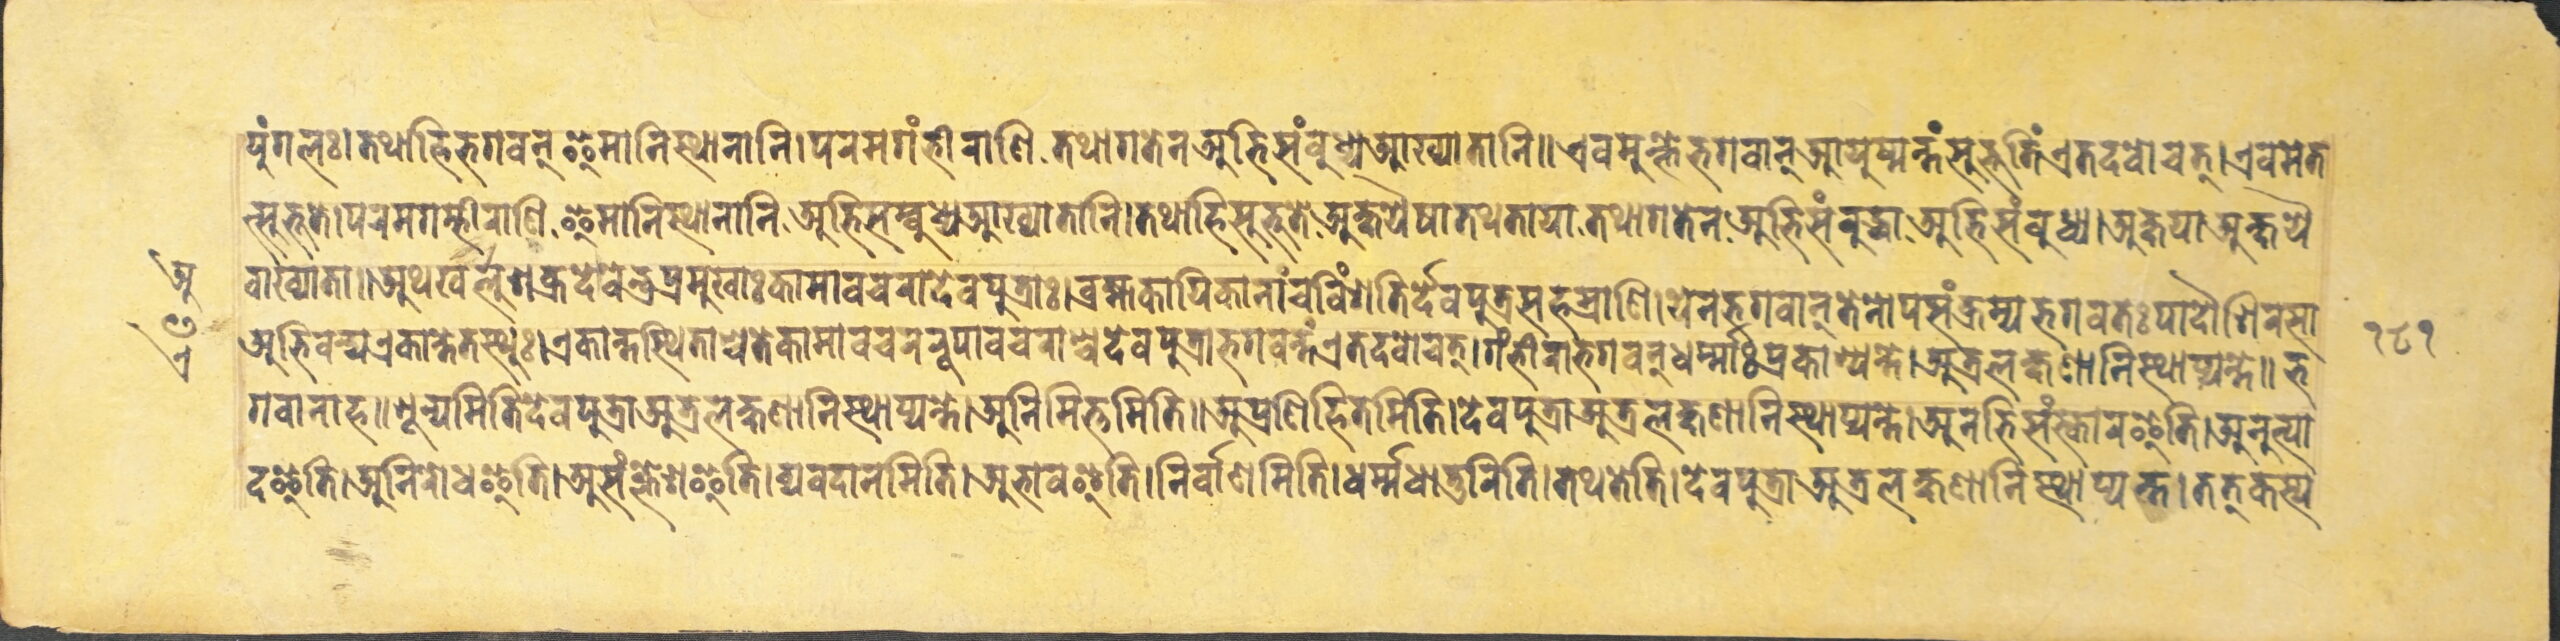 पुंगलः। तथा हि भगवन् इमानि स्थानानि। परमगंभीराणि तथागतेन अभिसंबुध्य आख्यातानि॥ एवमुक्ते भगवान् आयुष्मन्तं सुभूतिं एतदवोचत्। एवमेत
त्सुभूते। परमगम्भीराणि इमानि स्थानानि अभिसम्बुध्य आख्यातानि। तथा हि सुभूते अक्षयैषा तथता या तथागतेन अभिसंबुद्धा अभिसंबुध्य। अक्षया अक्षयै
वाख्याता॥ अथ खलु शक्रदेवेन्द्रप्रमुखाः कामावचरा देवपुत्राः। ब्रह्मकायिकानां च विंशतिर्देवपुत्रसहस्राणि। येन भगवान् तेनोपसंक्रम्य भगवतः पादौ शिरसा
अभिवन्द्य एकान्ते तस्थुः। एकान्तस्थिताश्च ते कामावचररूपावचराश्च देवपुत्रा भगवन्तं एतदवोचत्। गंभीरा भगवन् धर्म्माः प्रकाश्यन्ते। अत्र लक्षणानि स्थाप्यन्ते॥ भ
गवानाह॥ शून्यमिति देवपुत्रा अत्र लक्षणानि स्थाप्यन्ते। अनिमित्तमिति॥ अप्रणिहितमिति। देवपुत्रा अत्र लक्षणानि स्थाप्यन्ते। अनभिसंस्कार इति। अनुत्पा
द इति। अनिरोध इति। असंक्लेश इति। व्यवदानमिति। अभाव इति। निर्वाणमिति। धर्म्मधातुरिति। तथतेति। देवपुत्रा अत्र लक्षणानि स्थाप्यन्त। तत् कस्य
१८१